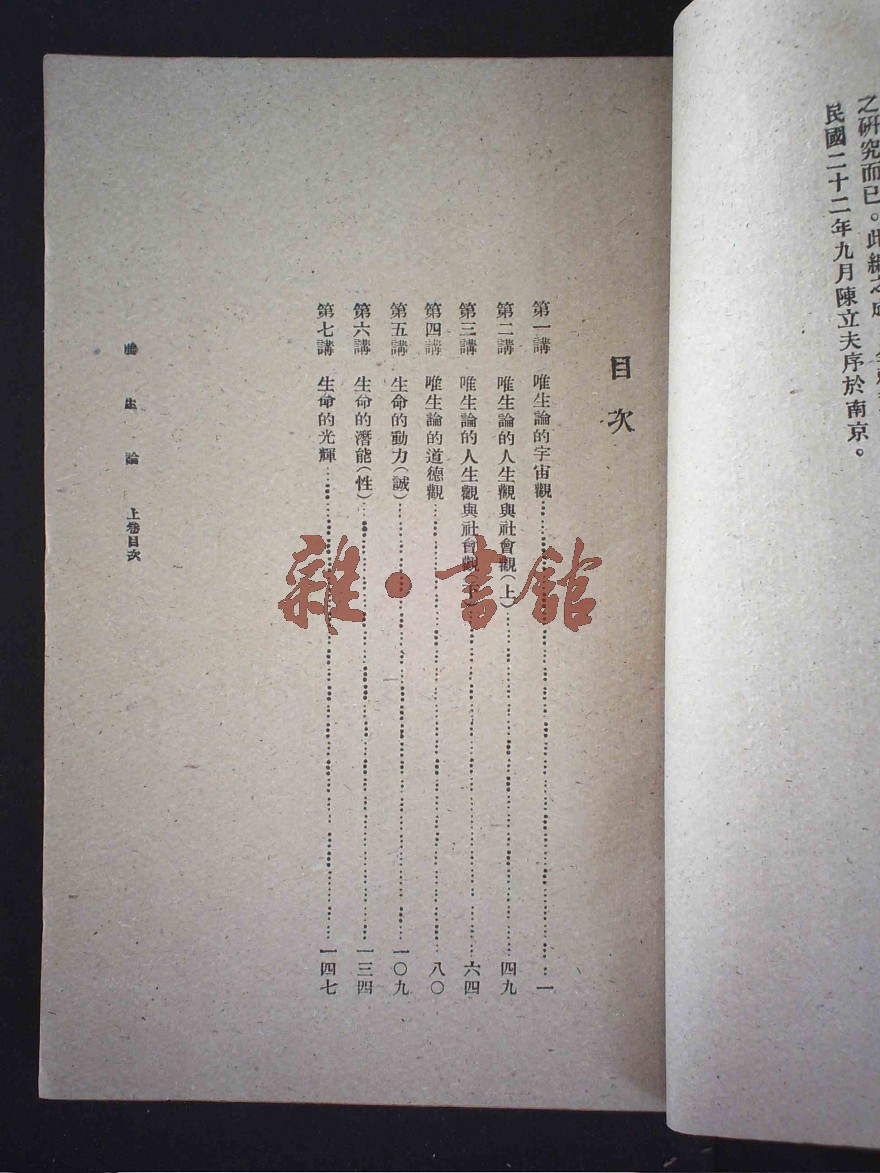 之研究而已。此編之
民國二十二年九月陳立夫序於南京。
目次
第一講 唯生論的宇宙觀……一
第二講 唯生論的人生觀與社會觀(上)……四九
第三講 唯生論的人生觀與社會觀(下)……六四
第四講 唯生論的道德觀……八〇
第五講 生命的動力(誠)……一〇九
第六講 生命的潛能(性)……一三四
第七講 生命的光輝……一四七
唯生論 上卷目次
雜·書館